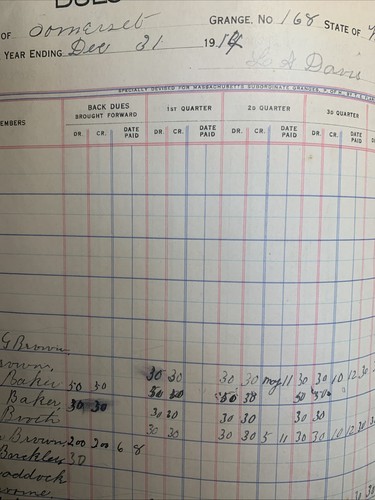 DUES
OF Somerset GRANGE. NO 168 STATE OF
YEAR ENDING Dec 31 1914
L S Davis
SPECIALLY DESIGNED FOR MASSACHUSETTS SUBORDINATE GRANGES, P. OF H., BY
MEMBERS BACK DUES BROUGHT FORWARD 1ST QUARTER 2D QUARTER 3D QUARTER
DR. CR. DATE PAID DR. CR. DATE PAID DR. CR. DATE PAID DR. CR. DATE PAID
G Brown
rown
Baker 50 50 30 30 30 30 May 11 30 30 10 12 30
Baker 30 30
Booth 30 30 30 30 30 30
Brown 200 200 6 8 30 30 30 30 5 11 30 30 10 12
Barkley 30
addock